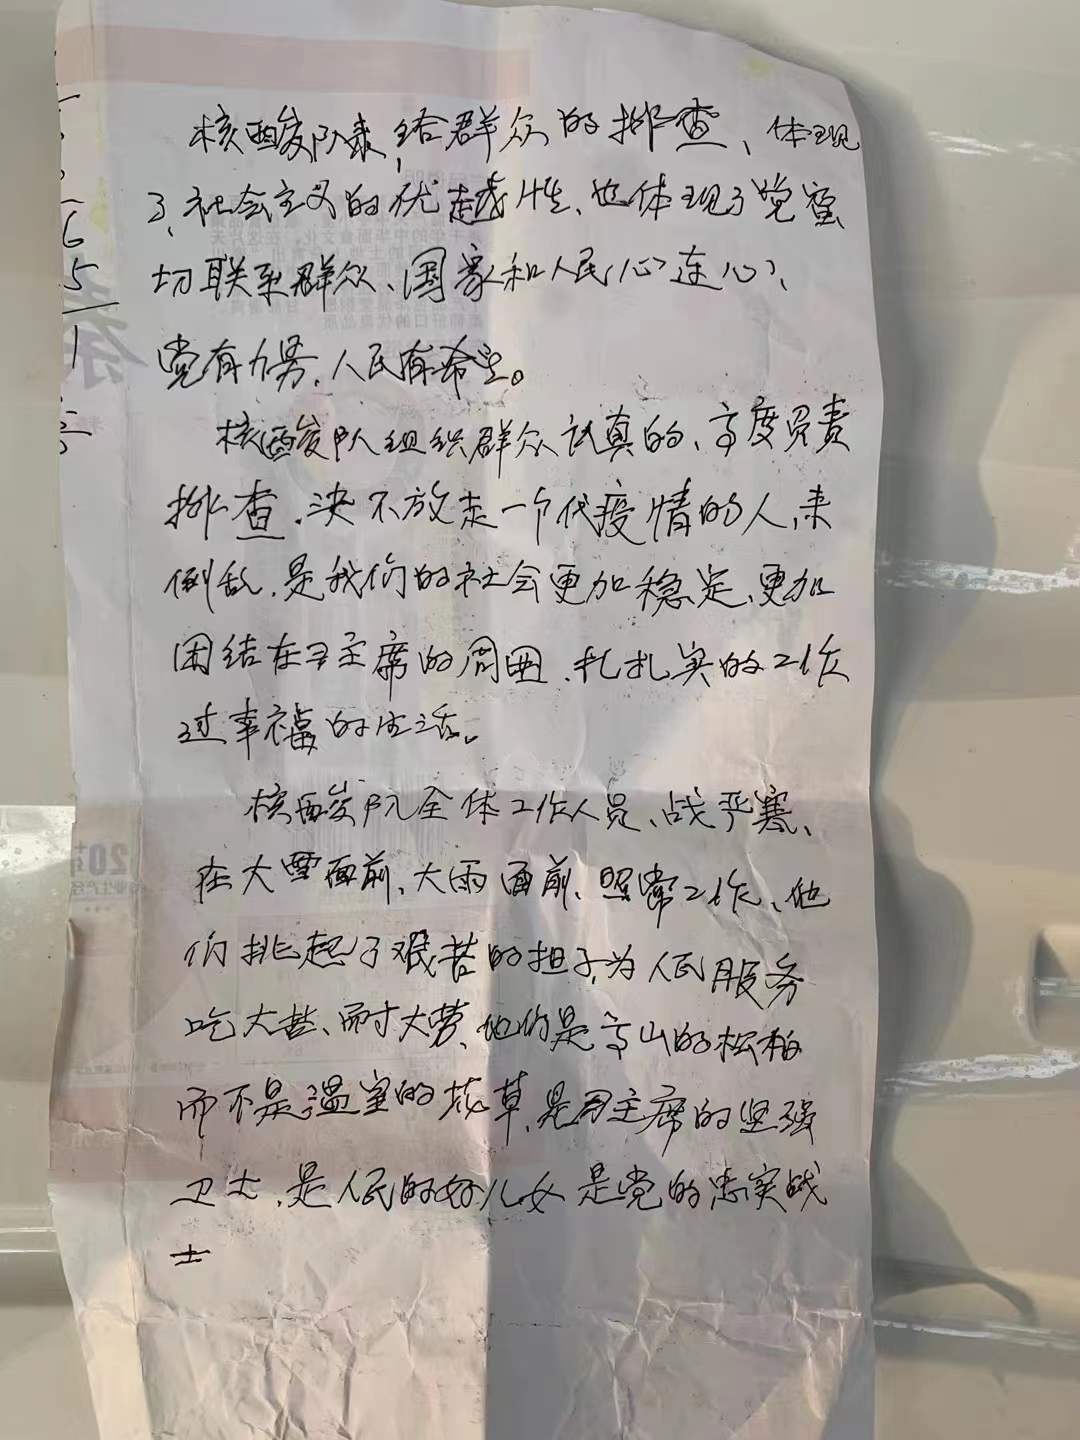 核酸队来,给群众的排查、体现
了、社会主义的优越性、也体现了党密
切联系群众、国家和人民心连心,
党有力男.人民有希望。
核酸队组织群众认真的、高度负责
排查.决不放走一个代疫情的人,来
倒乱.是我们的社会更加稳定、更加
团结在习主席的周围.扎扎实的工作
过幸福的生活。
核酸队全体工作人员、战严寒、
在大雪面前、大雨面前、照常工作、他
们挑起了艰苦的担子,为人民服务
吃大苦、耐大劳、他们是高山的松柏
而不是温室的花草.是习主席的坚强
卫士.是人民的好儿女是党的忠实战
士
6
5
1